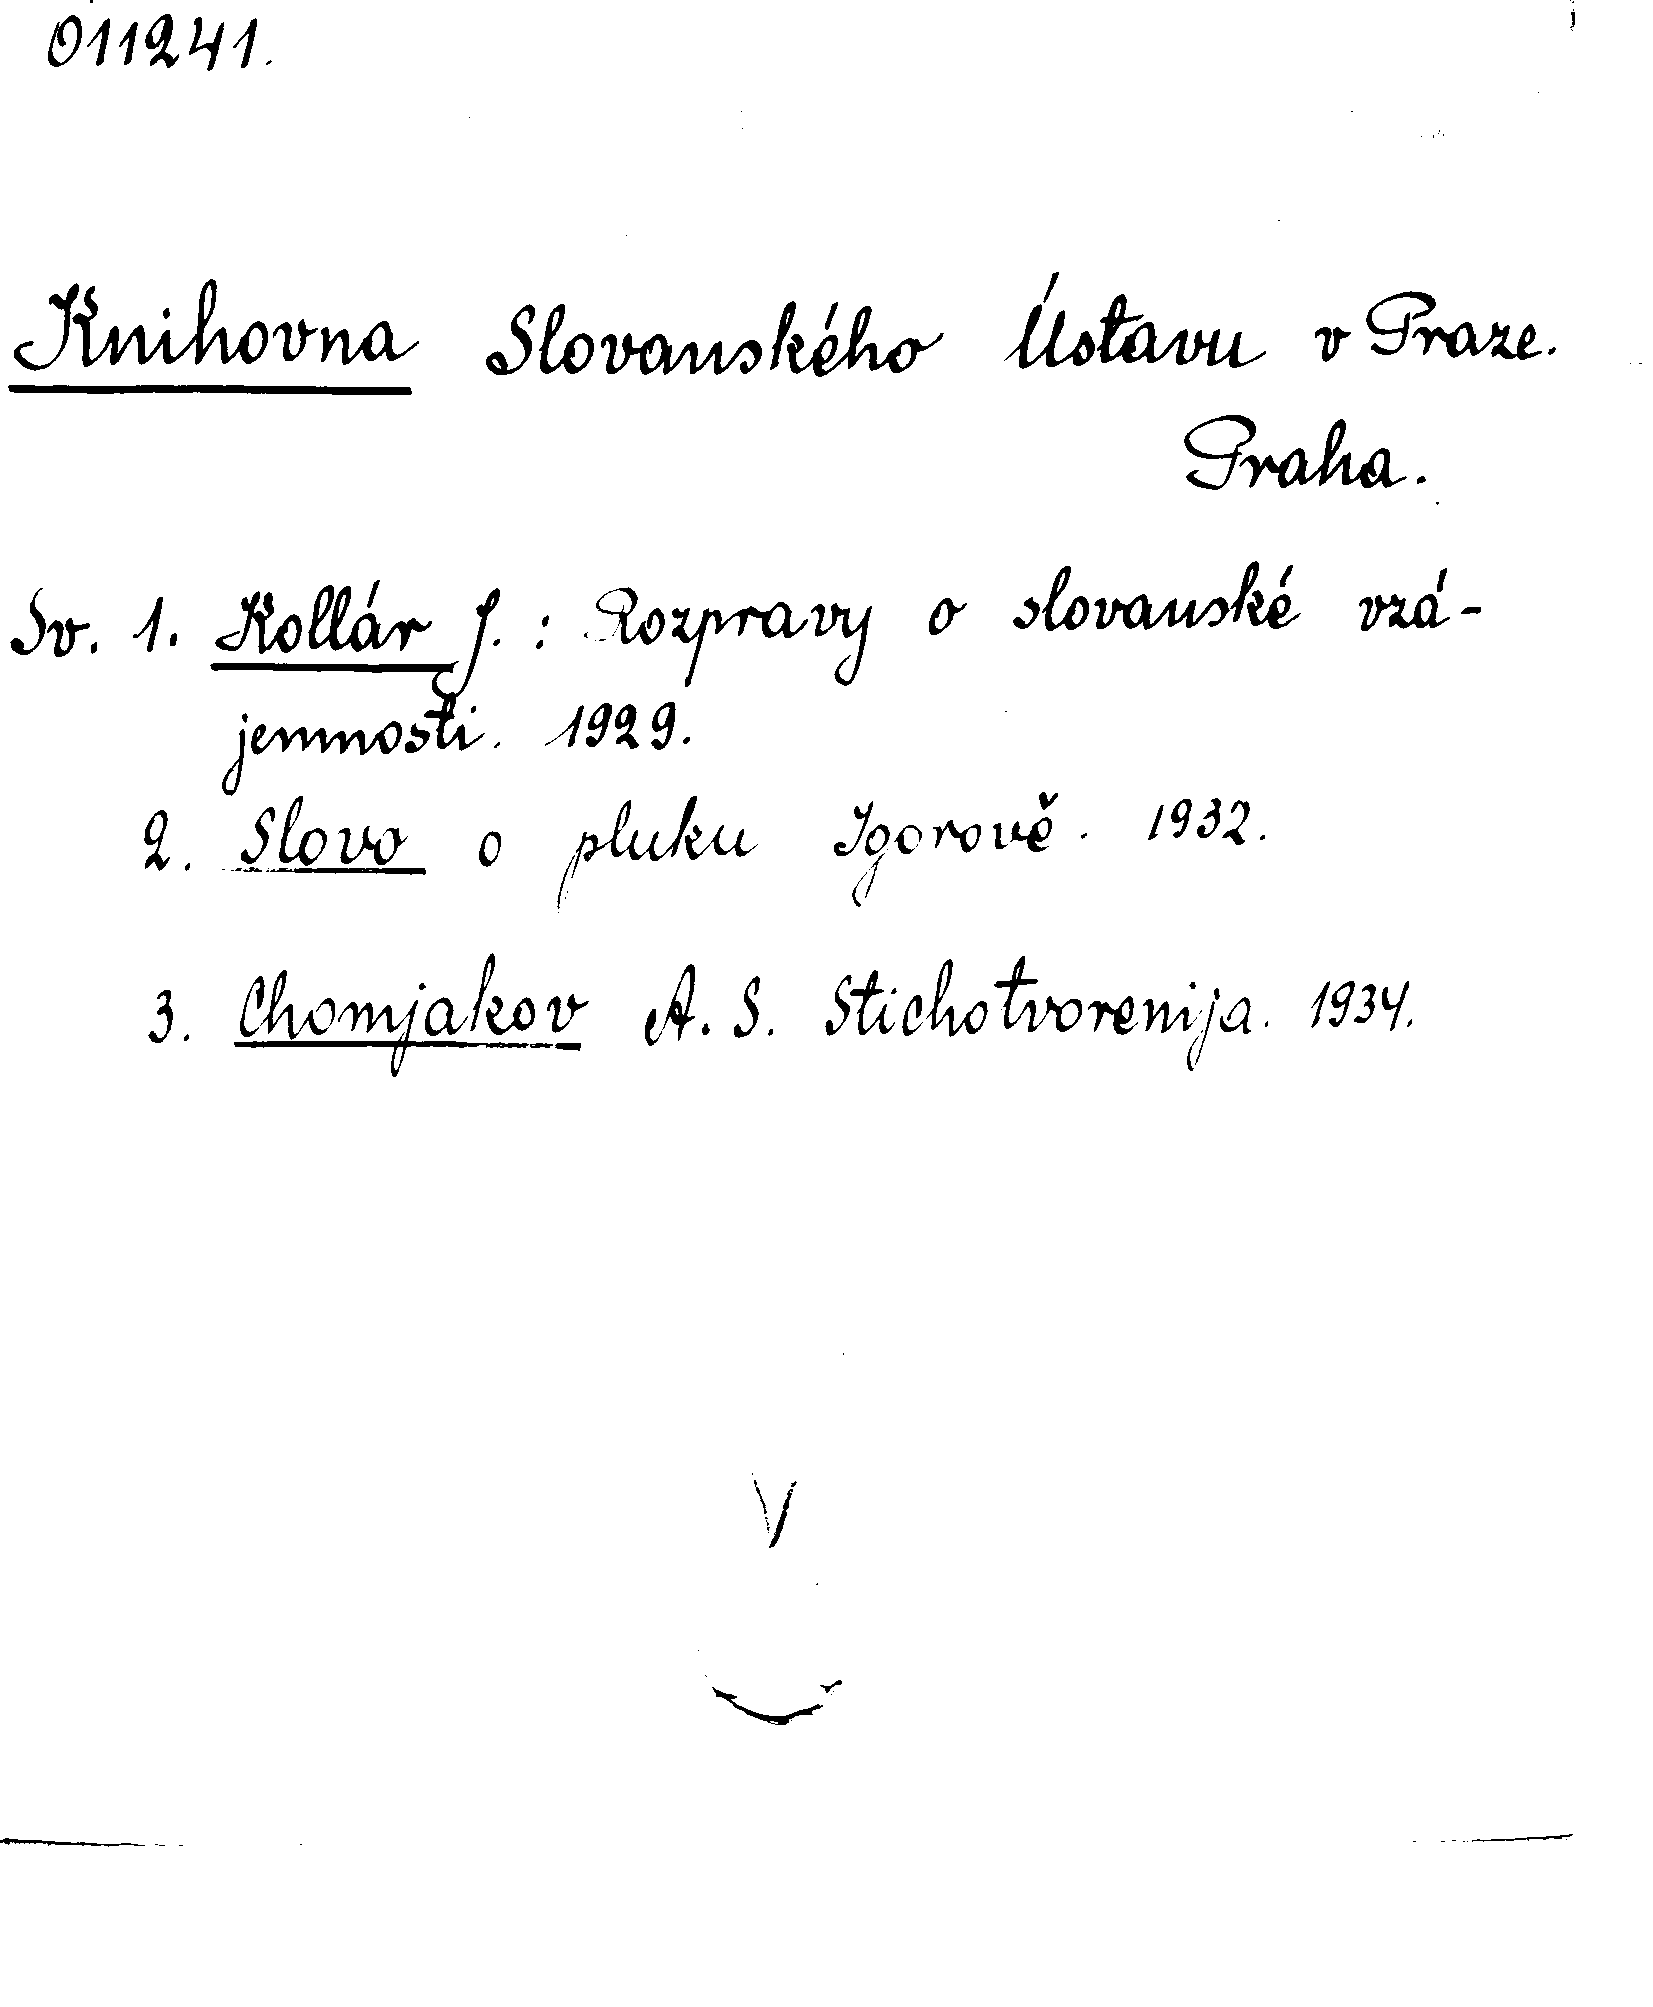 011241.
Knihovna Slovanského Ústavu v Praze.
Praha.
Sv. 1. Kollár J. : Rozpravy o slovanské vzá-
jemnosti. 1929.
2. Slovo o pluku Igorově. 1932.
3. Chomjakov A. S. Stichotvorenija. 1934.
V